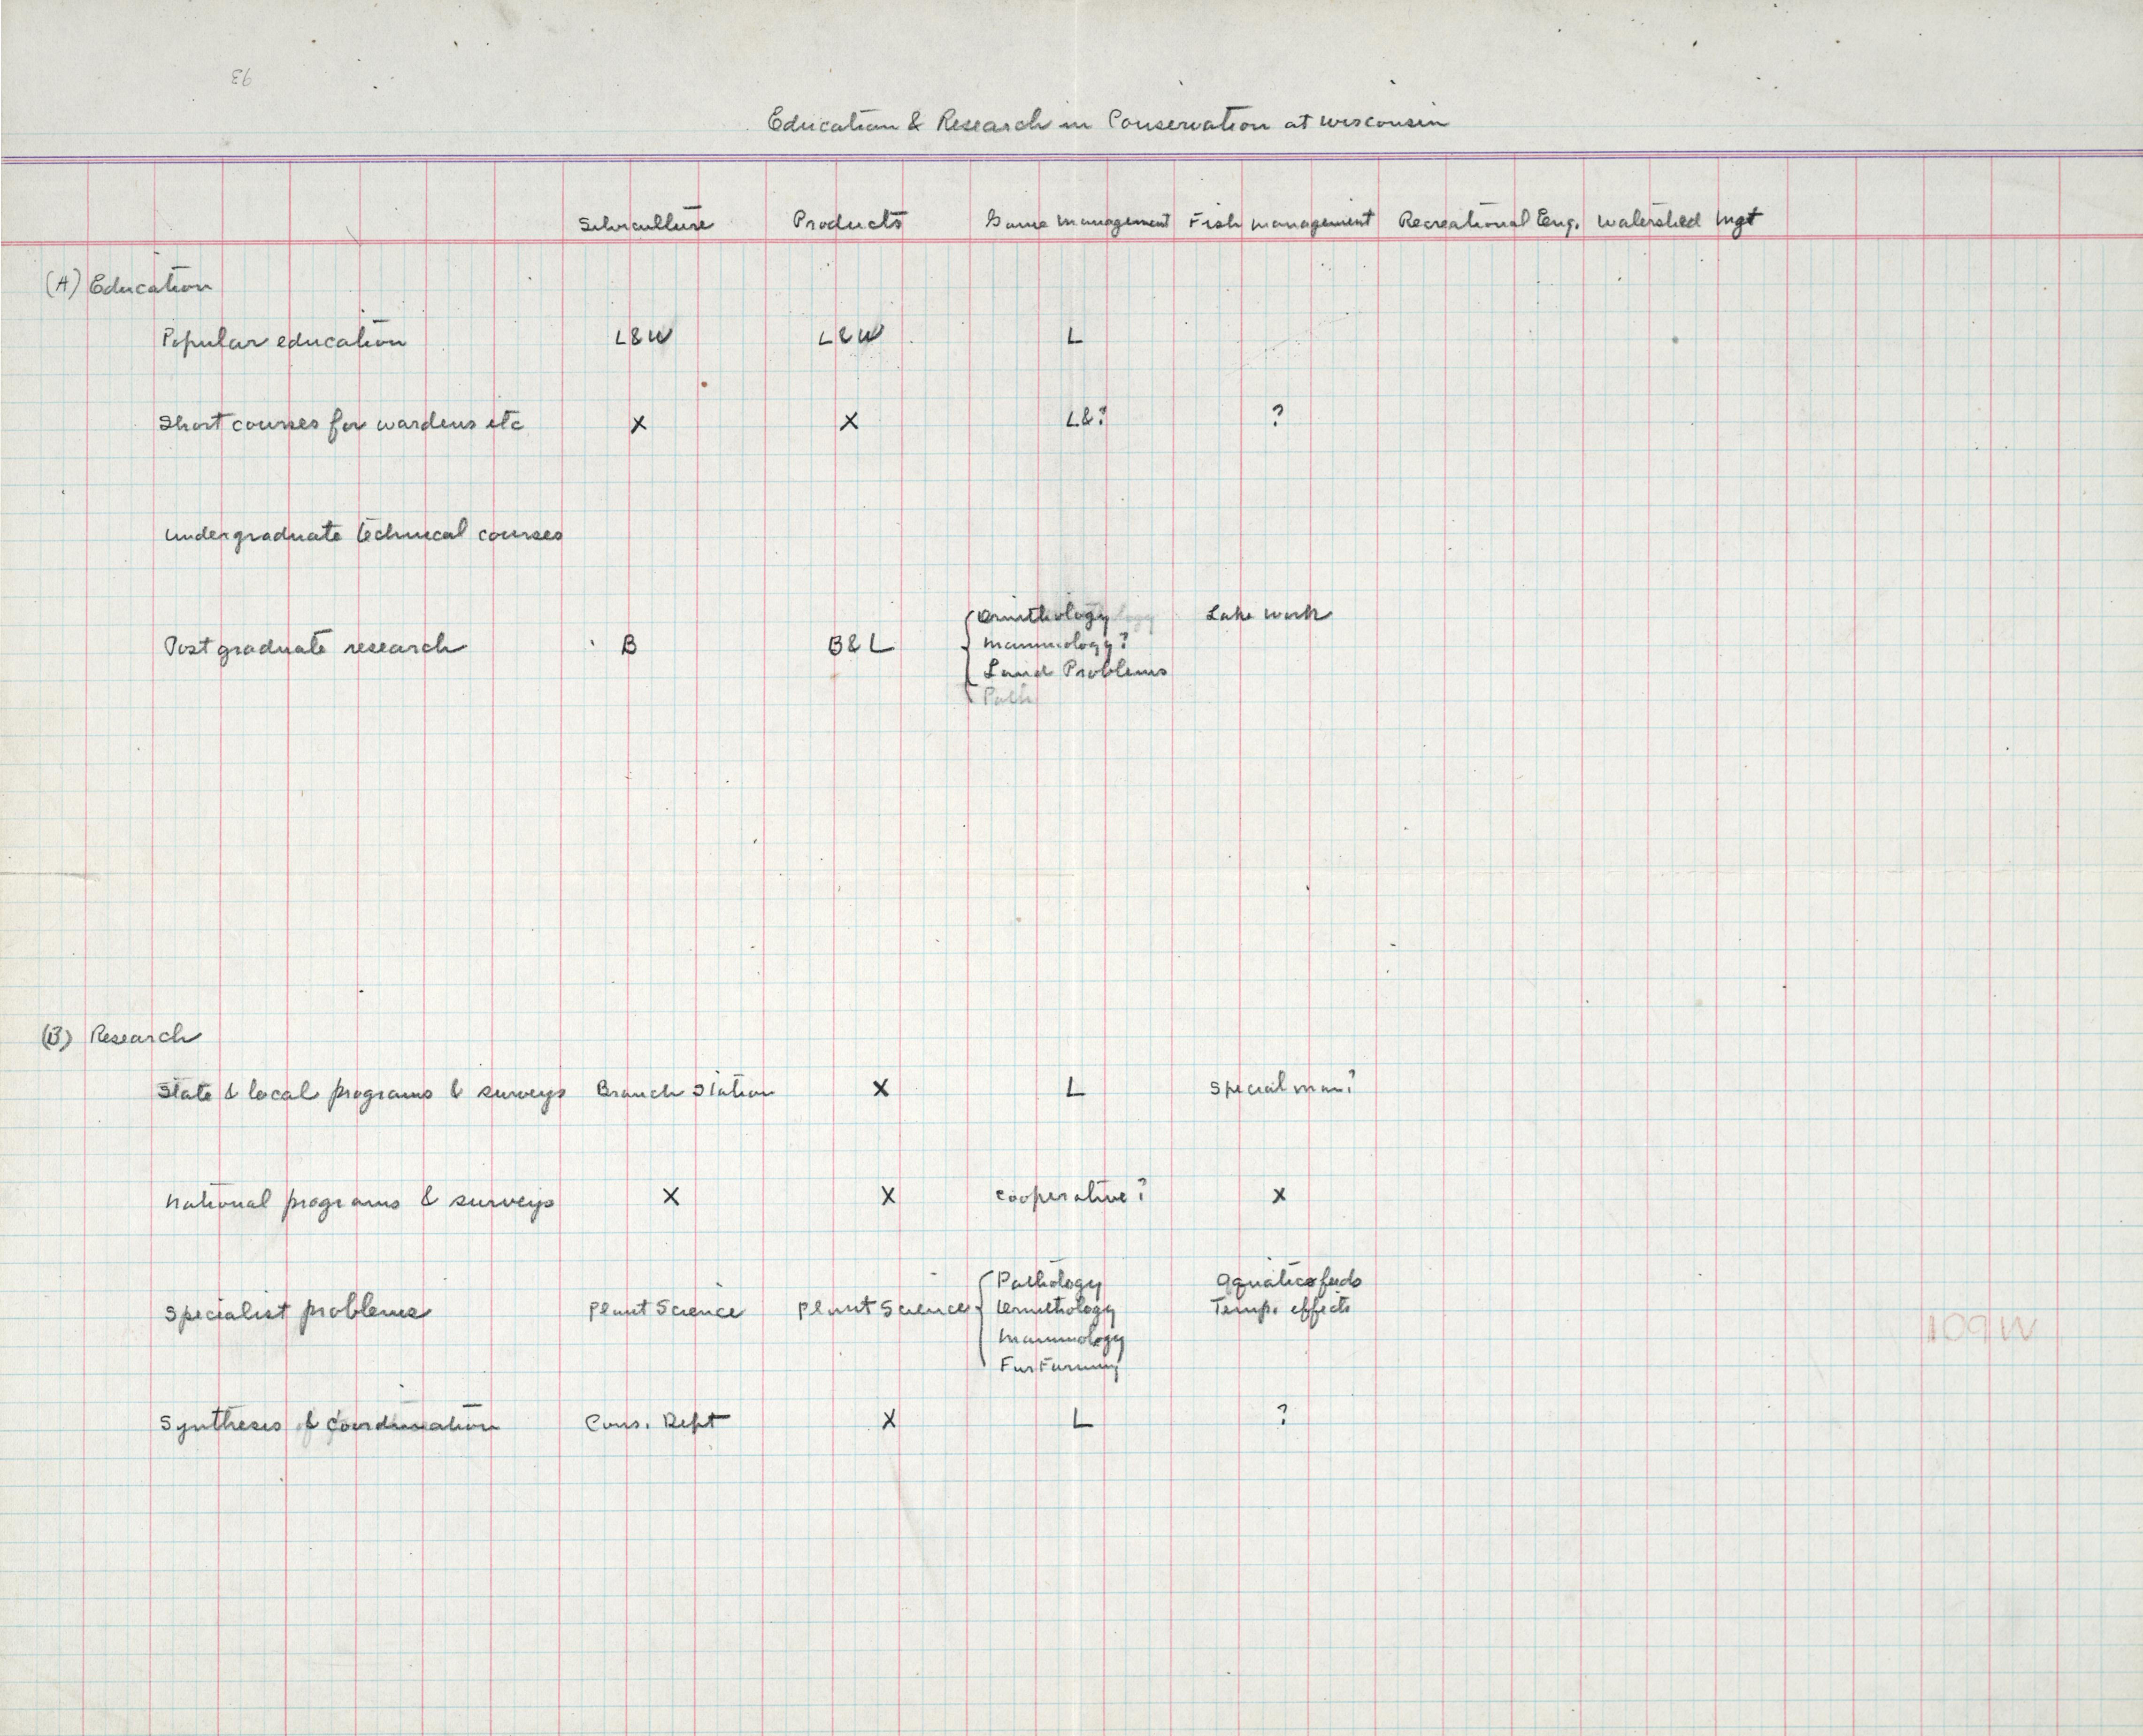 93
Education & Research in Conservation at Wisconsin
Silviculture Products Game Management Fish Management Recreational Eng. Watershed Mgt
(A) Education
Popular education L&W L&W L
Short courses for wardens etc X X L&? ?
Undergraduate technical courses
Postgraduate research B B&L Ornithology Lake work
Mammology?
Land Problems
Path
(B) Research
State & local programs & surveys Branch Station X L Special man?
National programs & surveys X X Cooperative? X
Specialist problems Plant Science Plant Science Pathology Aquatic foods
Ornithology Temp. effects
Mammology
Fur Farming
Synthesis & Coordination Cons. Dept X L ?